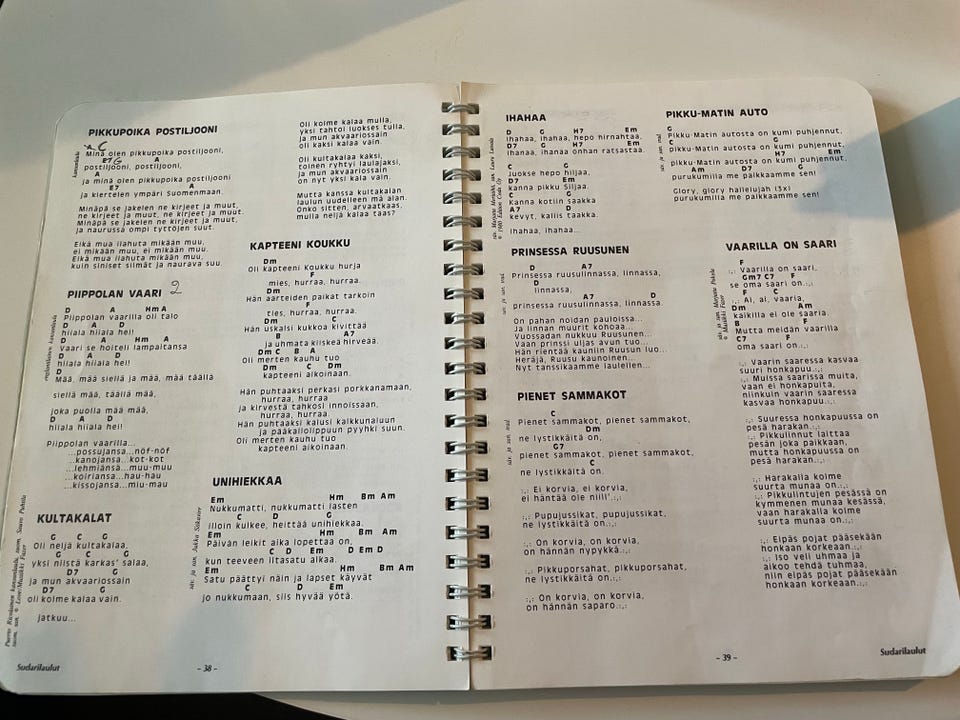 PIKKUPOIKA POSTILJOONI
A C
Minä olen pikkupoika postiljooni,
E7 G A
postiljooni, postiljooni,
A
ja minä olen pikkupoika postiljooni
E7 A
ja kiertelen ympäri Suomenmaan.
Minäpä se jakelen ne kirjeet ja muut,
ne kirjeet ja muut, ne kirjeet ja muut.
Minäpä se jakelen ne kirjeet ja muut,
ja naurussa ompi tyttöjen suut.
Eikä mua ilahuta mikään muu,
ei mikään muu, ei mikään muu.
Eikä mua ilahuta mikään muu,
kuin siniset silmät ja naurava suu.
kansanlaulu
PIIPPOLAN VAARI 2
D A F Hm A
Piippolan vaarilla oli talo
D A D
hiiala hiiala hei!
D A Hm A
Vaari se hoiteli lampaitansa
D A D
hiiala hiiala hei!
D
Mää, mää siellä ja mää, mää täällä
siellä mää, täällä mää,
joka puolla mää mää,
D A D
hiiala hiiala hei!
Piippolan vaarilla...
...possujansa...nöf-nöf
...kanojansa...kot-kot
...lehmiänsa...muu-muu
...koiriansa...hau-hau
...kissojansa...miu-mau
englantilainen kansanlaulu
KULTAKALAT
G C G
Oli neljä kultakalaa,
G C G
yksi niistä karkas' salaa,
D7 G
ja mun akvaariossain
D7 G
oli kolme kalaa vain.
jatkuu...
Oli kolme kalaa mulla,
yksi tahtoi luokses tulla,
ja mun akvaariossain
oli kaksi kalaa vain.
Oli kultakalaa kaksi,
toinen ryhtyi laulajaksi,
ja mun akvaariossain
on nyt yksi kala vain.
Mutta kanssa kultakalan
laulun uudelleen mä alan.
Onko sitten, arvaatkaas,
mulla neljä kalaa taas?
KAPTEENI KOUKKU
Dm
Oli kapteeni Koukku hurja
F
mies, hurraa, hurraa.
Dm
Hän aarteiden paikat tarkoin
F
ties, hurraa, hurraa.
Dm C
Hän uskalsi kukkoa kivittää
B A7
ja uhmata kiiskeä hirveää.
Dm C B A
Oli merten kauhu tuo
Dm C Dm
kapteeni aikoinaan.
Hän puhtaaksi perkasi porkkanaman,
hurraa, hurraa
ja kirvestä tahkosi innoissaan,
hurraa, hurraa.
Hän puhtaaksi kalusi kalkkunaluun
ja pääkallolippuun pyyhki suun.
Oli merten kauhu tuo
kapteeni aikoinaan.
UNIHIEKKAA
Em Hm Bm Am
Nukkumatti, nukkumatti lasten
D C D G
illoin kulkee, heittää unihiekkaa.
Em Hm Bm Am
Päivän leikit aika lopettaa on,
C D Em D Em D
kun teeveen iltasatu alkaa.
Em Hm Bm Am
Satu päättyi näin ja lapset käyvät
C D Em
jo nukkumaan, siis hyvää yötä.
säv. ja san. Jukka Siikavire
Sudarilaulut
- 38 -
IHAHAA
D G H7 Em
Ihahaa, ihahaa, hepo hirnahtaa,
D7 G H7 Em
ihahaa, ihahaa onhan ratsastaa.
C G
Juokse hepo hiljaa,
D7 Em
kanna pikku Siljaa.
C G
Kanna kotiin saakka
A7 D
kevyt, kallis taakka.
Ihahaa, ihahaa...
PRINSESSA RUUSUNEN
D A7
Prinsessa ruusulinnassa, linnassa,
D
linnassa,
A7 D
prinsessa ruusulinnassa, linnassa.
On pahan noidan pauloissa...
Ja linnan muurit kohoaa...
Vuossadan nukkuu Ruusunen...
Vaan prinssi uljas avun tuo...
Hän rientää kauniin Ruusun luo...
Heräjä, Ruusu kaunoinen...
Nyt tanssikaamme laulellen...
säv. ja san. trad.
PIENET SAMMAKOT
C
Pienet sammakot, pienet sammakot,
Dm
ne lystikkäitä on,
G7
pienet sammakot, pienet sammakot,
C
ne lystikkäitä on.
:,: Ei korvia, ei korvia,
ei häntää ole niill'.:,:
:,: Pupujussikat, pupujussikat,
ne lystikkäitä on.:,:
:,: On korvia, on korvia,
on hännän nypykkä.:,:
:,: Pikkuporsahat, pikkuporsahat,
ne lystikkäitä on.:,:
:,: On korvia, on korvia,
on hännän saparo.:,:
säv. ja san. trad.
PIKKU-MATIN AUTO
G
Pikku-Matin autosta on kumi puhjennut,
C G
pikku-Matin autosta on kumi puhjennut,
H7 Em
pikku-Matin autosta on kumi puhjennut,
Am D7 G
purukumilla me paikkaamme sen!
Glory, glory hallelujah (3x)
purukumilla me paikaamme sen!
säv. ja san. trad.
VAARILLA ON SAARI
F
:,: Vaarilla on saari,
Gm7 C7 F
se oma saari on.:,:
F C
:,: Ai, ai, vaaria,
Dm Am
kaikilla ei ole saaria,
B F
Mutta meidän vaarilla
C7 F
oma saari on.:,:
:,: Vaarin saaressa kasvaa
suuri honkapuu.:,:
:,: Muissa saarissa muita,
vaan ei honkapuita,
niinkuin vaarin saaressa
kasvaa honkapuu.:,:
:,: Suuressa honkapuussa on
pesä harakan.:,:
:,: Pikkulinnut laittaa
pesän joka paikkaan,
mutta honkapuussa on
pesä harakan.:,:
:,: Harakalla kolme
suurta munaa on.:,:
:,: Pikkulintujen pesässä on
kymmenen munaa kesässä,
vaan harakalla kolme
suurta munaa on.:,:
:,: Eipäs pojat pääsekään
honkaan korkeaan.:,:
:,: Iso veli uhmaa ja
aikoo tehdä tuhmaa,
niin eipäs pojat pääsekään
honkaan korkeaan.:,:
- 39 -
Sudarilaulut